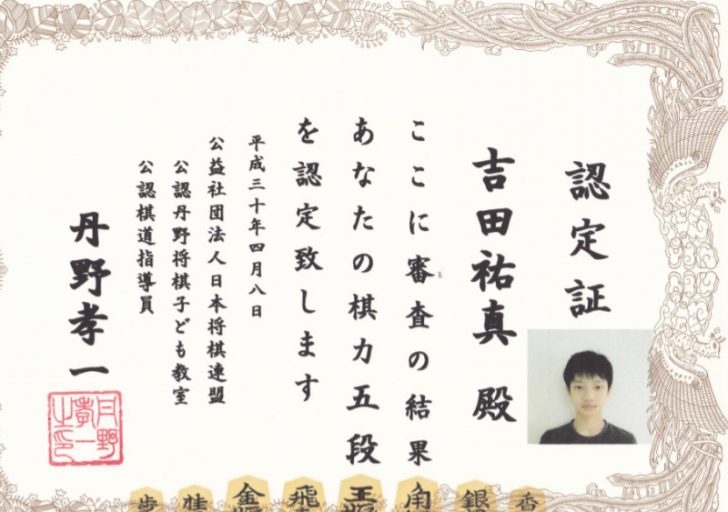 認定証
吉田祐真 殿
ここに審査の結果
あなたの棋力五段
を認定致します
平成三十年四月八日
公益社団法人日本将棋連盟
公認丹野将棋子ども教室
公認棋道指導員
丹野孝一
丹野
孝一
之印
歩 桂 金 飛 王 角 銀 香